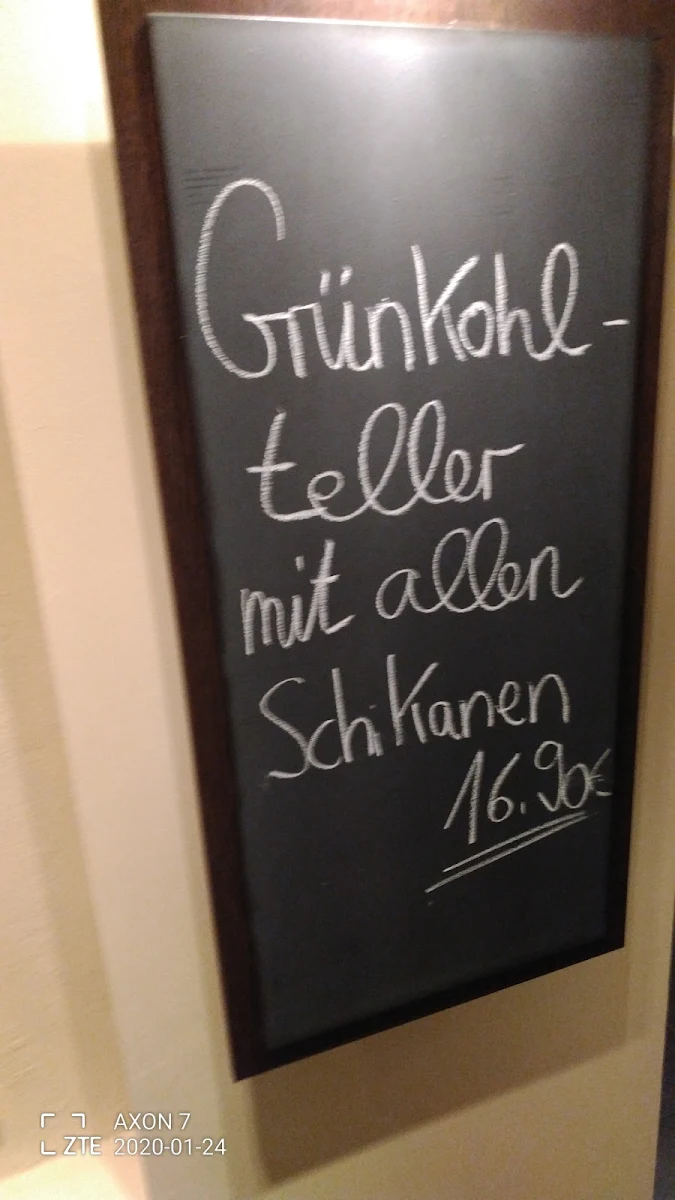 Grünkohl-
teller
mit allen
Schikanen
16.90€
AXON 7
ZTE 2020-01-24